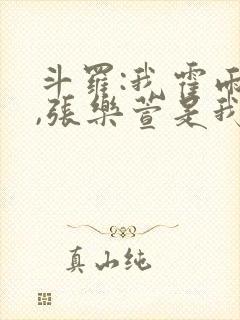 斗罗:我霍雨
,张乐萱是我
真山纯